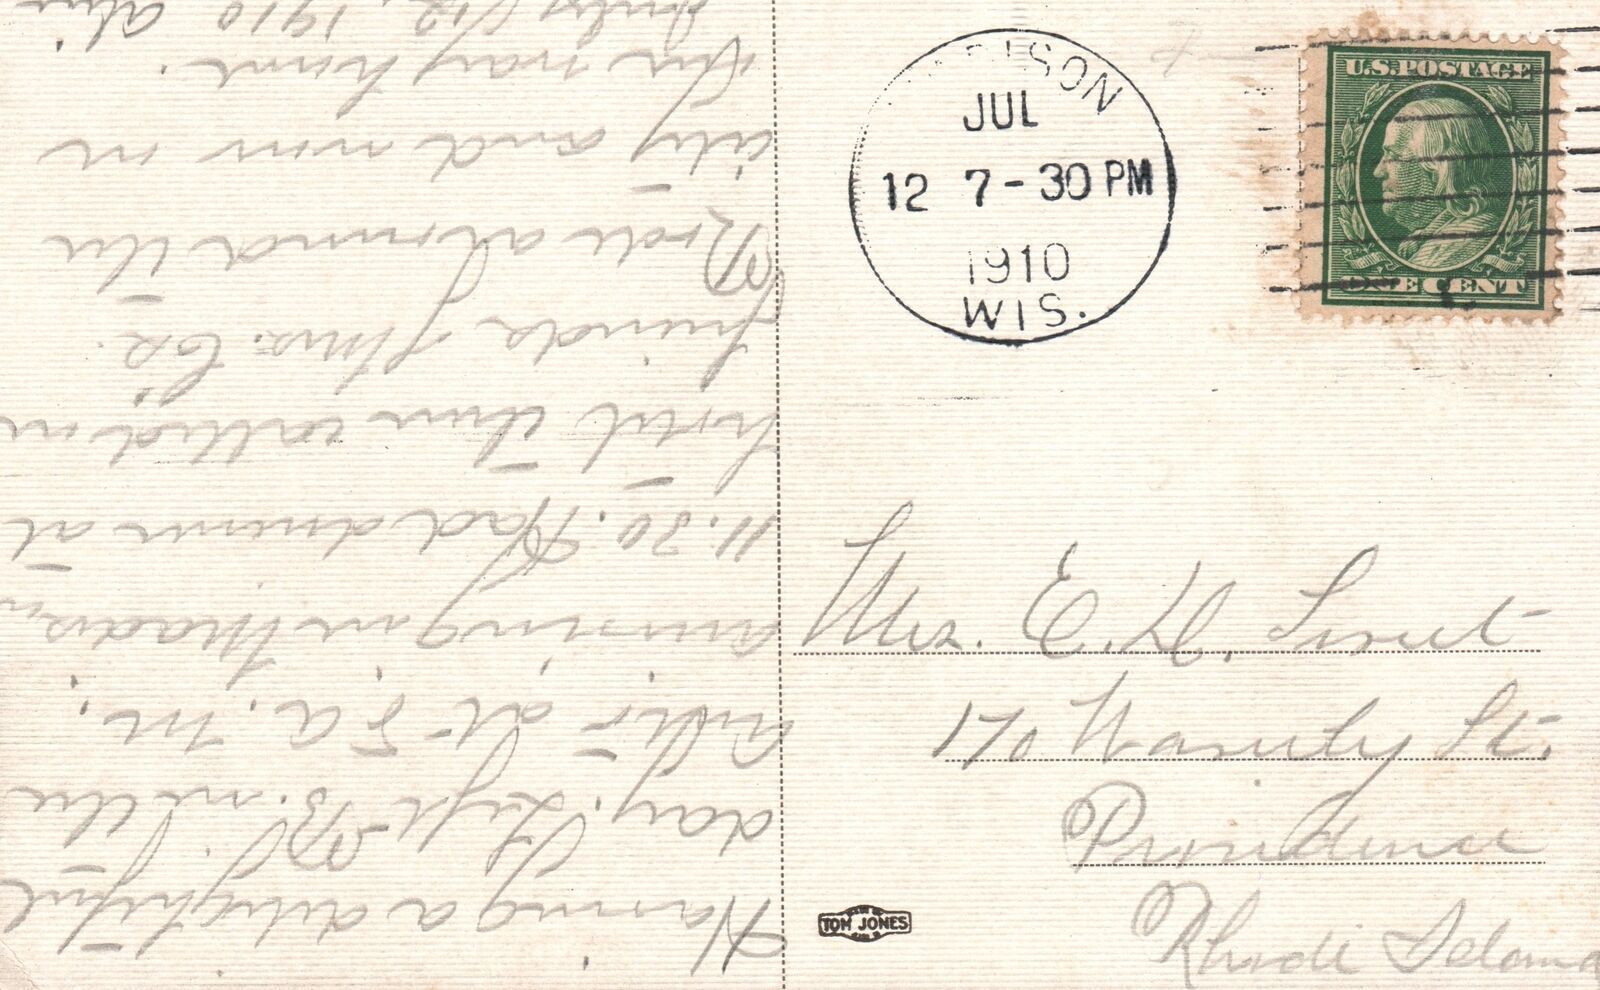 Having a delightful
day. Left B. in the
auto at 5 a.m.
arriving in Madis
11.30. Had dinner at
hotel then called on
friends Mrs.
Rode around the
city and now on
the way home.
July /12, 1910
DISON
JUL
12 7-30 PM
1910
WIS.
U.S. POSTAGE
ONE CENT
Mrs. E.
170 Waverly St.
Providence
Rhode Island
TOM JONES